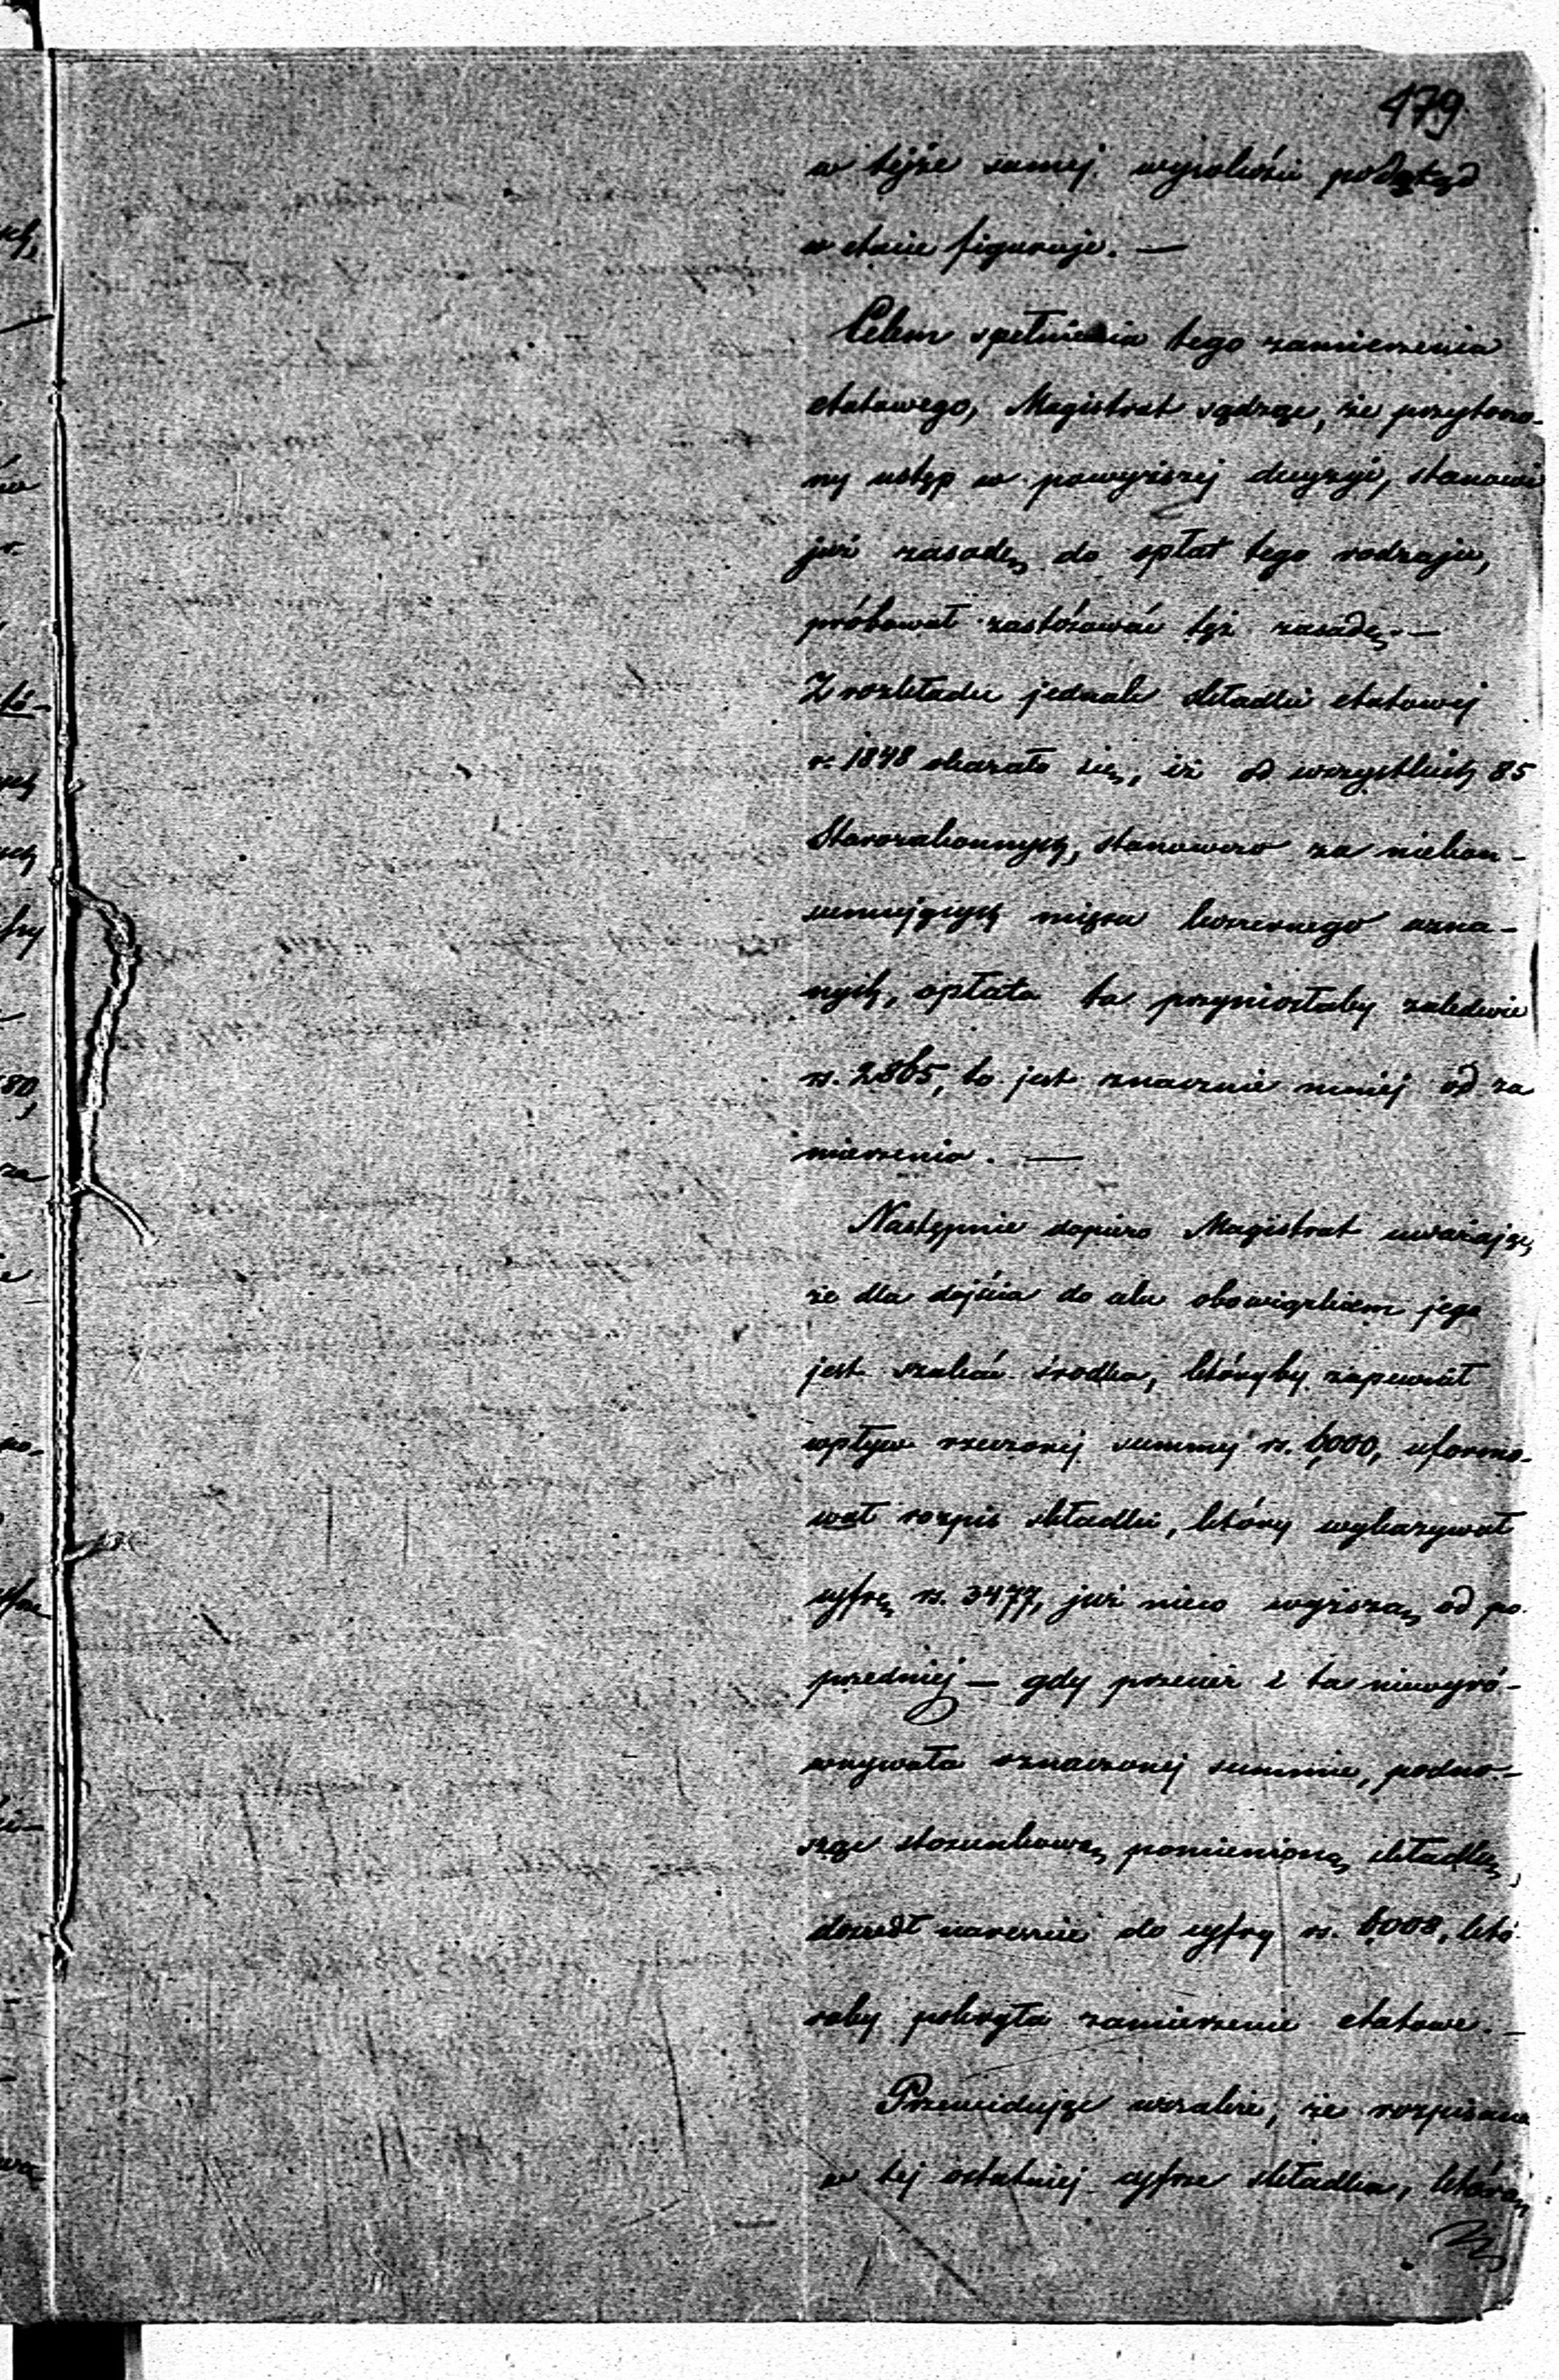 179
w tejże samej wysokości podziśdzień
w etacie figuruje. —
Celem spełnienia tego zamierzenia
etatowego, Magistrat sądząc, że przytoczo-
ny ustęp w powyższej decyzyi, stanowi
już zasadę do opłat tego rodzaju,
próbował zastósować tęż zasadę. —
Z rozkładu jednak składki etatowej
r. 1848 okazało się, iż od wszystkich 85
Starozakonnych, stanowczo za niekon-
sumujących mięsa koszernego uzna-
nych, opłata ta przyniosłaby zaledwie
rs. 2865, to jest znacznie mniej od za
mierzenia. —
Następnie dopiero Magistrat uważając,
że dla dojścia do celu obowiązkiem jego
jest szukać środka, któryby zapewniał
wpływ rzeczonej summy rs. 6000, uformo-
wał rozpis składki, który wykazywał
cyfrę rs. 3477, już nieco wyższą od po-
przedniej — gdy przecież i ta niewyró-
wnywała oznaczonej summie, podno-
sząc stosunkową pomienioną składkę,
doszedł nareszcie do cyfry rs. 6008, któ-
raby pokryła zamierzenie etatowe. —
Przewidując wszakże, że rozpisana
w tej ostatniej cyfrze składka, którą